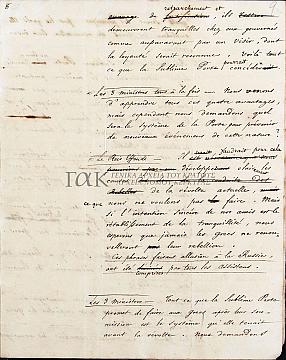 8
9
relâchement et
ménage de la fonction, ils
demeureront tranquilles chez eux gouvernés
comme auparavant par un vizir, dont
la loyauté serait reconnue. Voilà tout
ce que la Sublime Porte concéder
Les 3 ministres tous à la fois — Nous venons
d'apprendre tous ces quatre avantages,
mais cependant nous demandons quel
sera le système de la Porte pour prévenir
de nouveaux événemens de cette nature?
Le Reis Efendi — Il faudrait pour cela
développer chez les
de la révolte actuelle,
ce que nous ne voulons pas faire. Mais
si l'intention sincère de nos amis est le
rétablissement de la tranquillité, nous
espérons que jamais les grecs ne renou-
velleront leur rébellion.
Ces phrases faisant allusion à la Russie,
ont été comprises par tous les assistans.
Les 3 Ministres — Tout ce que la Sublime Porte
promet de faire aux grecs après leur sou-
mission est le système qu'elle tenait
avant la révolte. Nous demandons
ΓΑΚ
ΓΕΝΙΚΑ ΑΡΧΕΙΑ ΤΟΥ ΚΡΑΤΟΥΣ